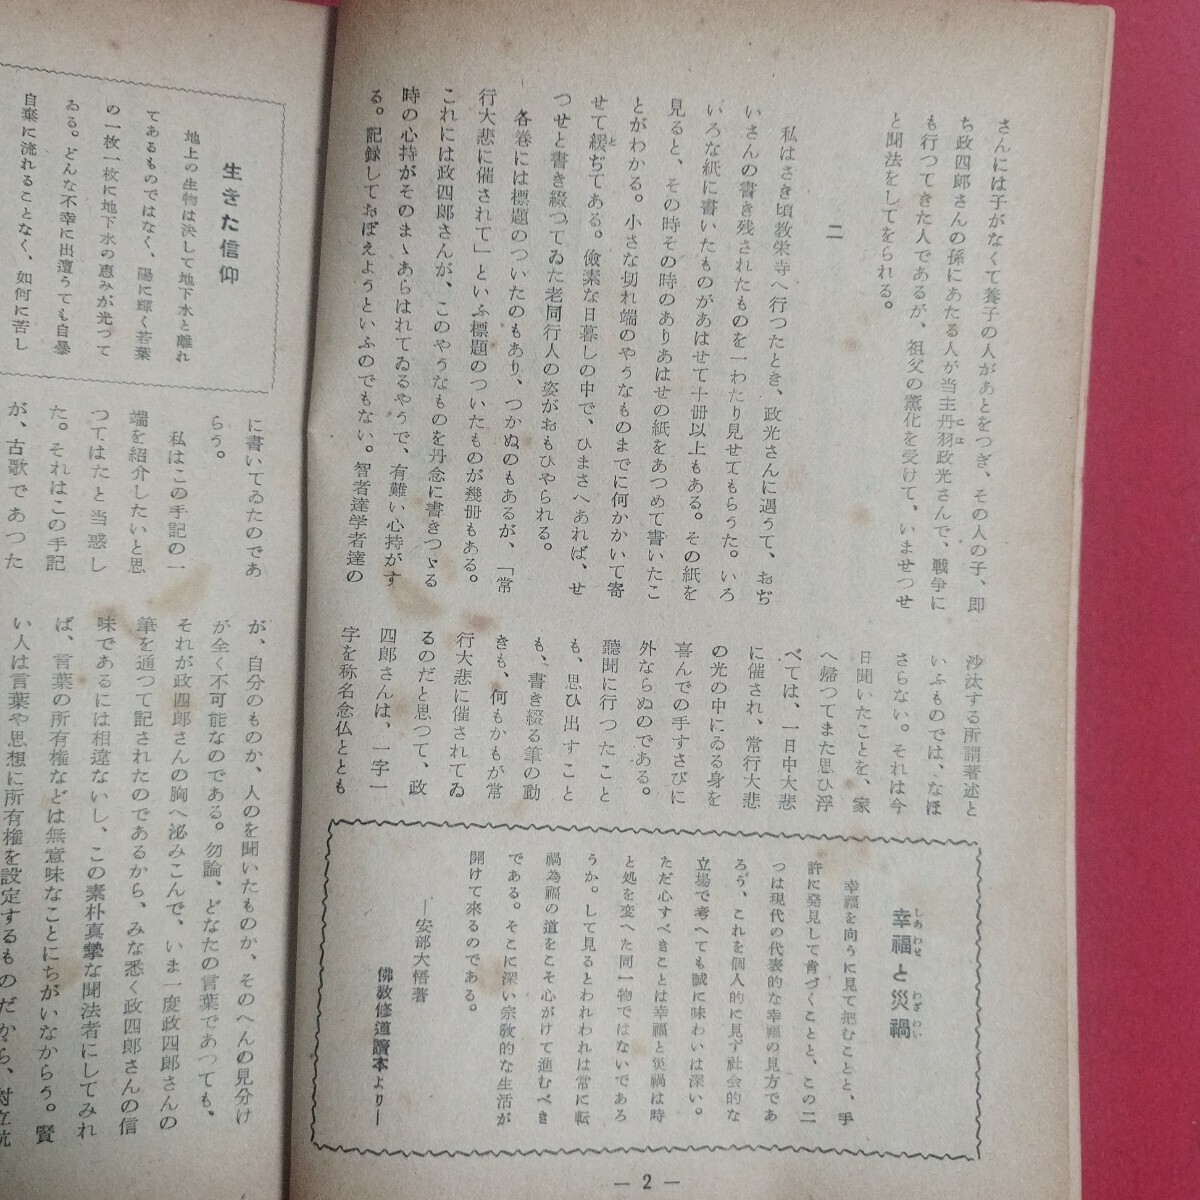 さんには子がなくて養子の人があとをつぎ、その人の子、即
ち政四郎さんの孫にあたる人が当主丹羽政光さんで、戦争に
も行つてきた人であるが、祖父の薫化を受けて、いませつせ
と聞法をしてをられる。
二
私はさき頃教栄寺へ行つたとき、政光さんに遇うて、おぢ
いさんの書き残されたものを一わたり見せてもらうた。いろ
いろな紙に書いたものがあはせて十冊以上もある。その紙を
見ると、その時その時のありあはせの紙をあつめて書いたこ
とがわかる。小さな切れ端のやうなものまでに何かかいて寄
せて緩ぢてある。儉素な日暮しの中で、ひまさへあれば、せ
つせと書き綴つてゐた老同行人の姿がおもひやられる。
各巻には標題のついたのもあり、つかぬのもあるが、「常
行大悲に催されて」といふ標題のついたものが幾冊もある。
これには政四郎さんが、このやうなものを丹念に書きつゞる
時の心持がそのまゝあらはれてゐるやうで、有難い心持がす
る。記録しておぼえようといふのでもない。智者達学者達の
沙汰する所謂著述と
いふものでは、なほ
さらない。それは今
日聞いたことを、家
へ帰つてまた思ひ浮
べては、一日中大悲
に催され、常行大悲
の光の中にゐる身を
喜んでの手すさびに
外ならぬのである。
聽聞に行つたこと
も、思ひ出すこと
も、書き綴る筆の動
きも、何もかもが常
行大悲に催されてゐ
るのだと思つて、政
四郎さんは、一字一
字を称名念仏ととも
幸福と災禍
しあわせ
わざわい
幸福を向うに見て把むことと、手
許に発見して肯づくことと、この二
つは現代の代表的な幸福の見方であ
ろう、これを個人的に見ず社会的な
立場で考へても誠に味わいは深い。
ただ心すべきことは幸福と災禍は時
と処を変へた同一物ではないであろ
うか。して見るとわれわれは常に転
禍為福の道をこそ心がけて進むべき
である。そこに深い宗敎的な生活が
開けて来るのである。
―安部大悟著
佛敎修道讀本より―
― 2 ―
生きた信仰
地上の生物は決して地下水と離れ
てあるものではなく、陽に輝く若葉
の一枚一枚に地下水の恵みが光つて
ゐる。どんな不幸に出遭うても自暴
自棄に流れることなく、如何に苦し
に書いてゐたのであ
らう。
私はこの手記の一
端を紹介したいと思
つてはたと当惑し
た。それはこの手記
が、古歌であつた
が、自分のものか、人のを聞いたものか、そのへんの見分け
が全く不可能なのである。勿論、どなたの言葉であつても、
それが政四郎さんの胸へ泌みこんで、いま一度政四郎さんの
筆を通つて記されたのであるから、みな悉く政四郎さんの信
味であるには相違ないし、この素朴真摯な聞法者にしてみれ
ば、言葉の所有権などは無意味なことにちがいなからう。賢
い人は言葉や思想に所有権を設定するものだから、対立抗